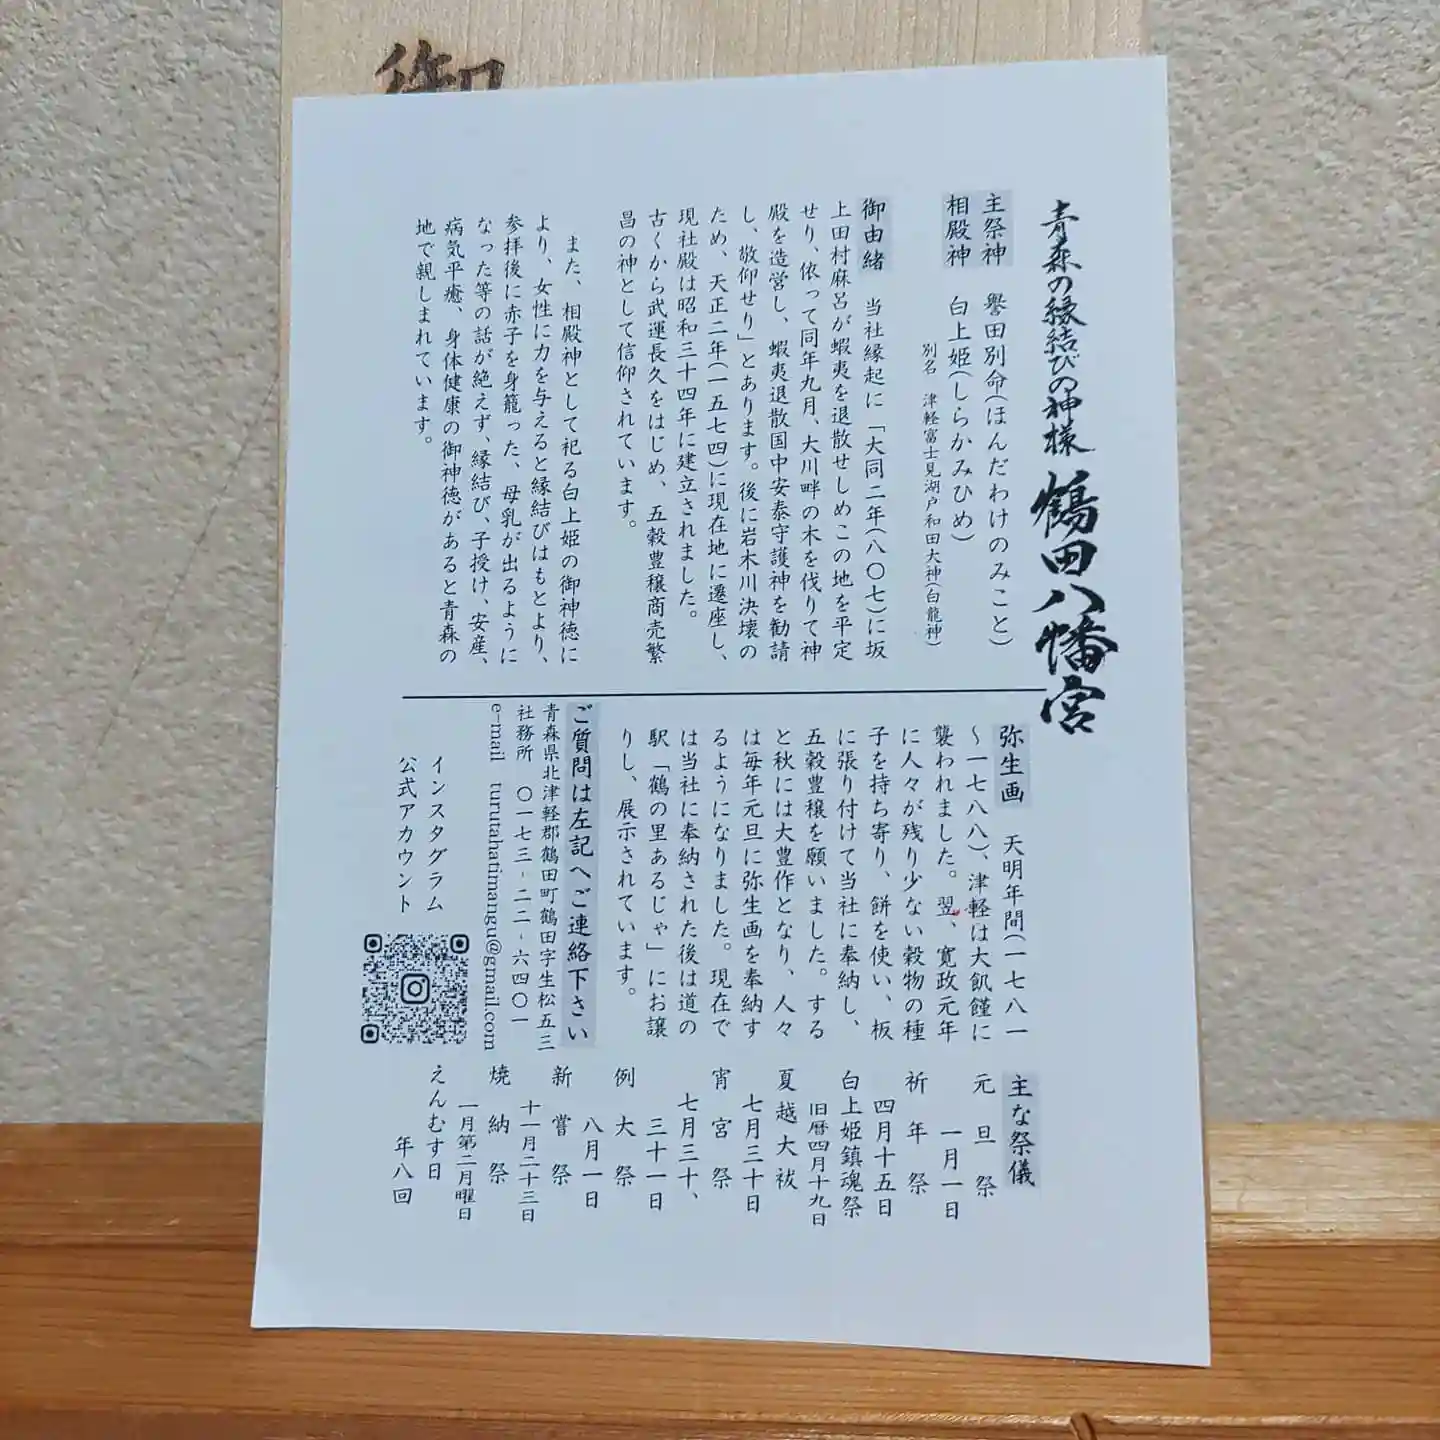 御
青森の縁結びの神様 鶴田八幡宮
主祭神 誉田別命(ほんだわけのみこと)
相殿神 白上姫(しらかみひめ)
別名 津軽富士見湖戸和田大神(白龍神)
御由緒 当社縁起に「大同二年(八〇七)に坂
上田村麻呂が蝦夷を退散せしめこの地を平定
せり、依って同年九月、大川畔の木を伐りて神
殿を造営し、蝦夷退散国中安泰守護神を勧請
し、敬仰せり」とあります。後に岩木川決壊の
ため、天正二年(一五七四)に現在地に遷座し、
現社殿は昭和三十四年に建立されました。
古くから武運長久をはじめ、五穀豊穣商売繁
昌の神として信仰されています。
また、相殿神として祀る白上姫の御神徳に
より、女性に力を与えると縁結びはもとより、
参拝後に赤子を身籠った、母乳が出るように
なった等の話が絶えず、縁結び、子授け、安産、
病気平癒、身体健康の御神徳があると青森の
地で親しまれています。
弥生画 天明年間(一七八一
〜一七八八)、津軽は大飢饉に
襲われました。翌、寛政元年
に人々が残り少ない穀物の種
子を持ち寄り、餅を使い、板
に張り付けて当社に奉納し、
五穀豊穣を願いました。する
と秋には大豊作となり、人々
は毎年元旦に弥生画を奉納す
るようになりました。現在で
は当社に奉納された後は道の
駅「鶴の里あるじゃ」にお譲
りし、展示されています。
ご質問は左記へご連絡下さい
青森県北津軽郡鶴田町鶴田字生松五三
社務所 〇一七三-二二-六四〇一
e-mail turutahatimangu@gmail.com
インスタグラム
公式アカウント
主な祭儀
元旦祭
一月一日
祈年祭
四月十五日
白上姫鎮魂祭
旧暦四月十九日
夏越大祓
七月三十日
宵宮祭
七月三十、
三十一日
例大祭
八月一日
新嘗祭
十一月二十三日
焼納祭
一月第二月曜日
えんむす日
年八回